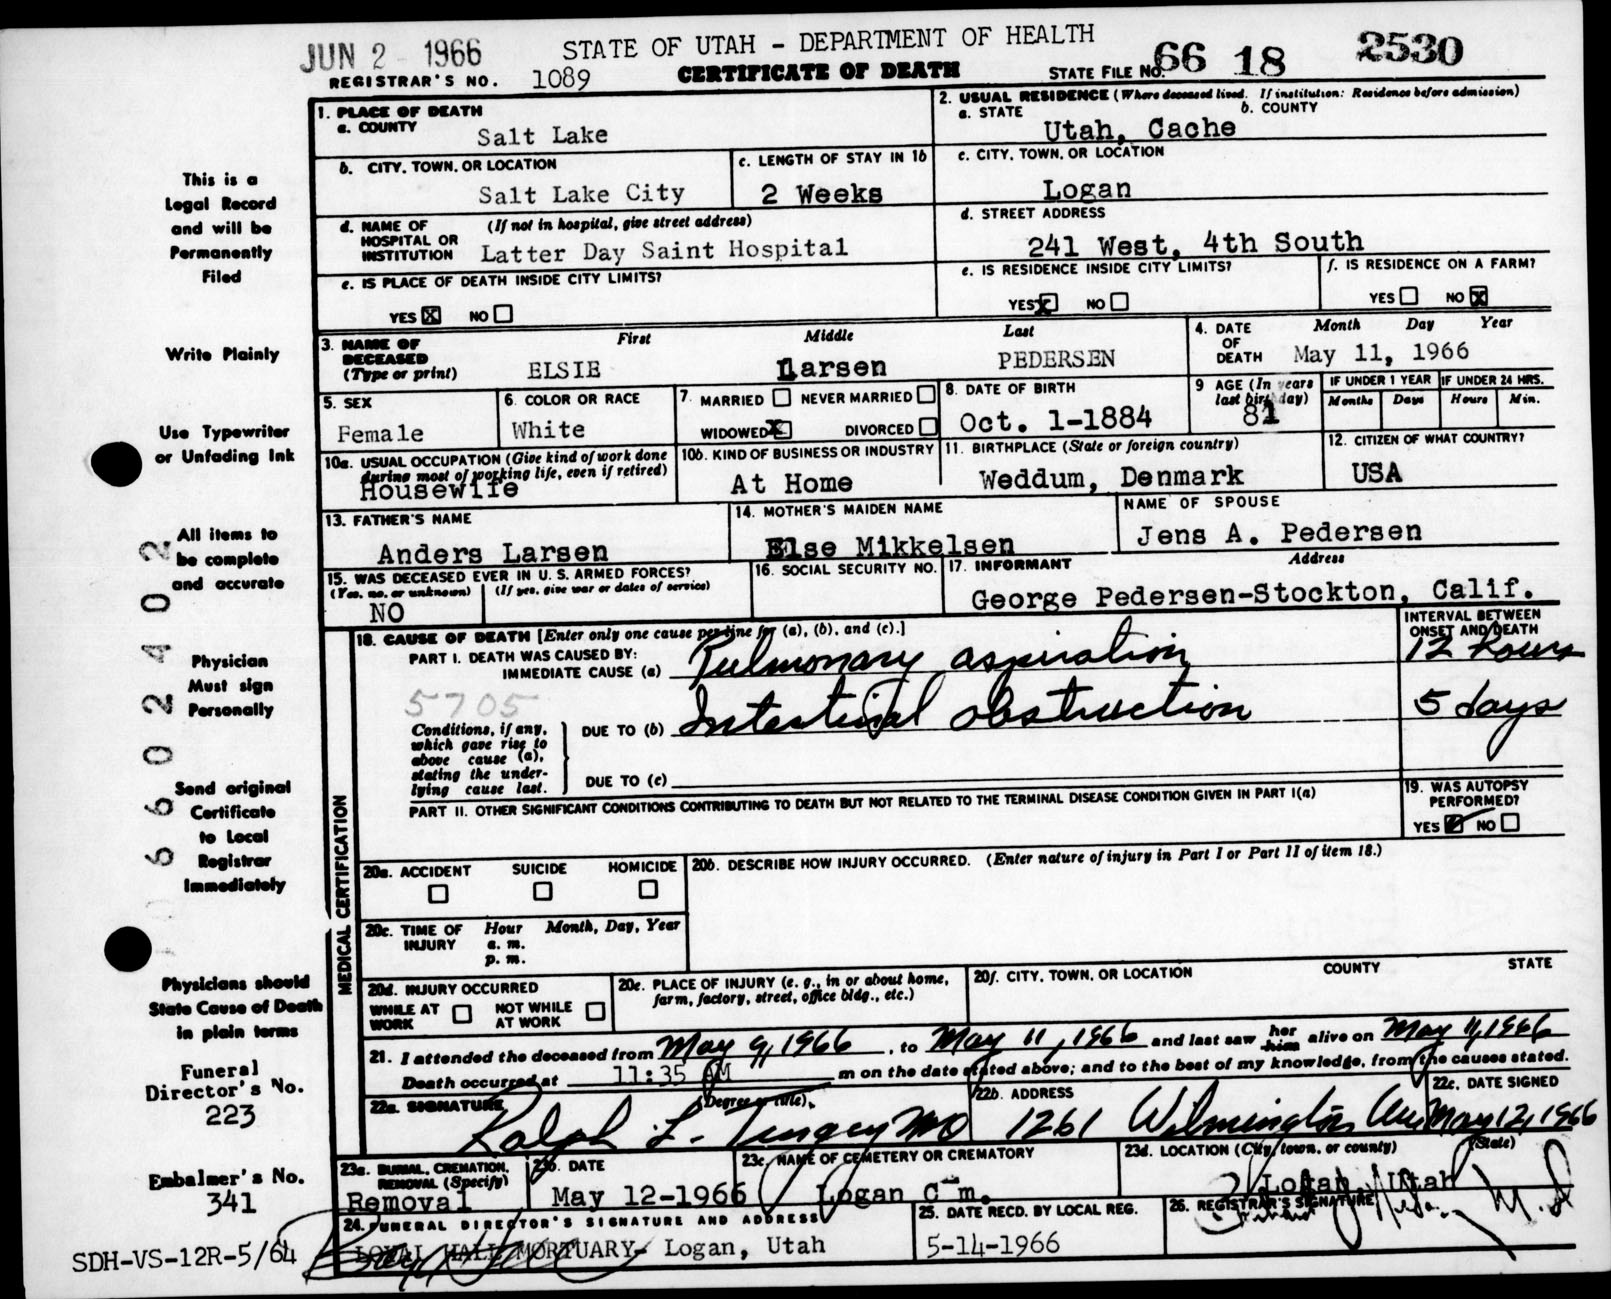 JUN 2 1966
STATE OF UTAH - DEPARTMENT OF HEALTH
REGISTRAR'S NO. 1089
CERTIFICATE OF DEATH
STATE FILE NO. 66 18 2530
This is a
Legal Record
and will be
Permanently
Filed
Write Plainly
Use Typewriter
or Unfading Ink
All items to
be complete
and accurate
Physician
Must sign
Personally
Send original
Certificate
to Local
Registrar
Immediately
Physicians should
State Cause of Death
in plain terms
Funeral
Director's No.
223
Embalmer's No.
341
SDH-VS-12R-5/64
6 6 0 2 4 0 2
1. PLACE OF DEATH
a. COUNTY
Salt Lake
2. USUAL RESIDENCE (Where deceased lived. If institution: Residence before admission)
a. STATE b. COUNTY
Utah, Cache
b. CITY, TOWN, OR LOCATION
Salt Lake City
c. LENGTH OF STAY IN 1b
2 Weeks
c. CITY, TOWN, OR LOCATION
Logan
d. NAME OF HOSPITAL OR INSTITUTION (If not in hospital, give street address)
Latter Day Saint Hospital
d. STREET ADDRESS
241 West, 4th South
e. IS PLACE OF DEATH INSIDE CITY LIMITS?
YES X NO
e. IS RESIDENCE INSIDE CITY LIMITS?
YES X NO
f. IS RESIDENCE ON A FARM?
YES NO X
3. NAME OF DECEASED (Type or print)
First Middle Last
ELSIE Larsen PEDERSEN
4. DATE OF DEATH Month Day Year
May 11, 1966
5. SEX
Female
6. COLOR OR RACE
White
7. MARRIED NEVER MARRIED
WIDOWED X DIVORCED
8. DATE OF BIRTH
Oct. 1-1884
9 AGE (In years last birthday)
81
IF UNDER 1 YEAR
Months Days
IF UNDER 24 HRS.
Hours Min.
10a. USUAL OCCUPATION (Give kind of work done during most of working life, even if retired)
Housewife
10b. KIND OF BUSINESS OR INDUSTRY
At Home
11. BIRTHPLACE (State or foreign country)
Weddum, Denmark
12. CITIZEN OF WHAT COUNTRY?
USA
13. FATHER'S NAME
Anders Larsen
14. MOTHER'S MAIDEN NAME
Else Mikkelsen
NAME OF SPOUSE
Jens A. Pedersen
15. WAS DECEASED EVER IN U. S. ARMED FORCES?
(Yes, no, or unknown) (If yes, give war or dates of service)
NO
16. SOCIAL SECURITY NO.
17. INFORMANT Address
George Pedersen-Stockton, Calif.
MEDICAL CERTIFICATION
18. CAUSE OF DEATH [Enter only one cause per line for (a), (b), and (c).]
INTERVAL BETWEEN ONSET AND DEATH
PART I. DEATH WAS CAUSED BY:
IMMEDIATE CAUSE (a) Pulmonary aspiration 12 hours
5705
Conditions, if any, which gave rise to above cause (a), stating the underlying cause last.
DUE TO (b) Intestinal obstruction 5 days
DUE TO (c)
PART II. OTHER SIGNIFICANT CONDITIONS CONTRIBUTING TO DEATH BUT NOT RELATED TO THE TERMINAL DISEASE CONDITION GIVEN IN PART I(a)
19. WAS AUTOPSY PERFORMED?
YES NO
20a. ACCIDENT SUICIDE HOMICIDE
20b. DESCRIBE HOW INJURY OCCURRED. (Enter nature of injury in Part I or Part II of item 18.)
20c. TIME OF INJURY Hour Month, Day, Year
a. m.
p. m.
20d. INJURY OCCURRED
WHILE AT WORK NOT WHILE AT WORK
20e. PLACE OF INJURY (e. g., in or about home, farm, factory, street, office bldg., etc.)
20f. CITY, TOWN, OR LOCATION COUNTY STATE
21. I attended the deceased from May 9, 1966, to May 11, 1966 and last saw her him alive on May 11, 1966
Death occurred at 11:35 AM m on the date stated above; and to the best of my knowledge, from the causes stated.
22a. SIGNATURE (Degree or title)
Ralph L. Tingey MD
22b. ADDRESS
1261 Wilmington Ave
22c. DATE SIGNED
May 12, 1966
23a. BURIAL, CREMATION, REMOVAL (Specify)
Removal
23b. DATE
May 12-1966
23c. NAME OF CEMETERY OR CREMATORY
Logan C m.
23d. LOCATION (City, town, or county) (State)
Logan, Utah
24. FUNERAL DIRECTOR'S SIGNATURE AND ADDRESS
HALL MORTUARY- Logan, Utah
25. DATE RECD. BY LOCAL REG.
5-14-1966
26. REGISTRAR'S SIGNATURE